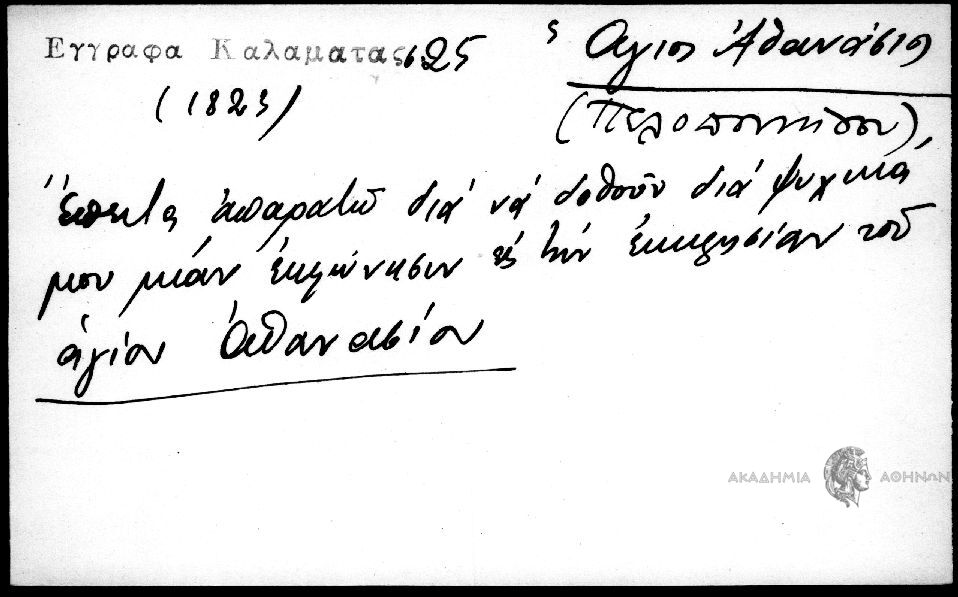 Εγγραφα Καλαματας 625
(1823)
Ἅγιος Ἀθανάσιος
(Πελοποννήσου),
Ἔπειτα ἀπαρατῶ διά νά δοθοῦν διά ψυχικά
μου μιάν ἐκφώνησιν εἰς τήν ἐκκλησίαν τοῦ
ἁγίου Ἀθανασίου
ΑΚΑΔΗΜΙΑ ΑΘΗΝΩΝ